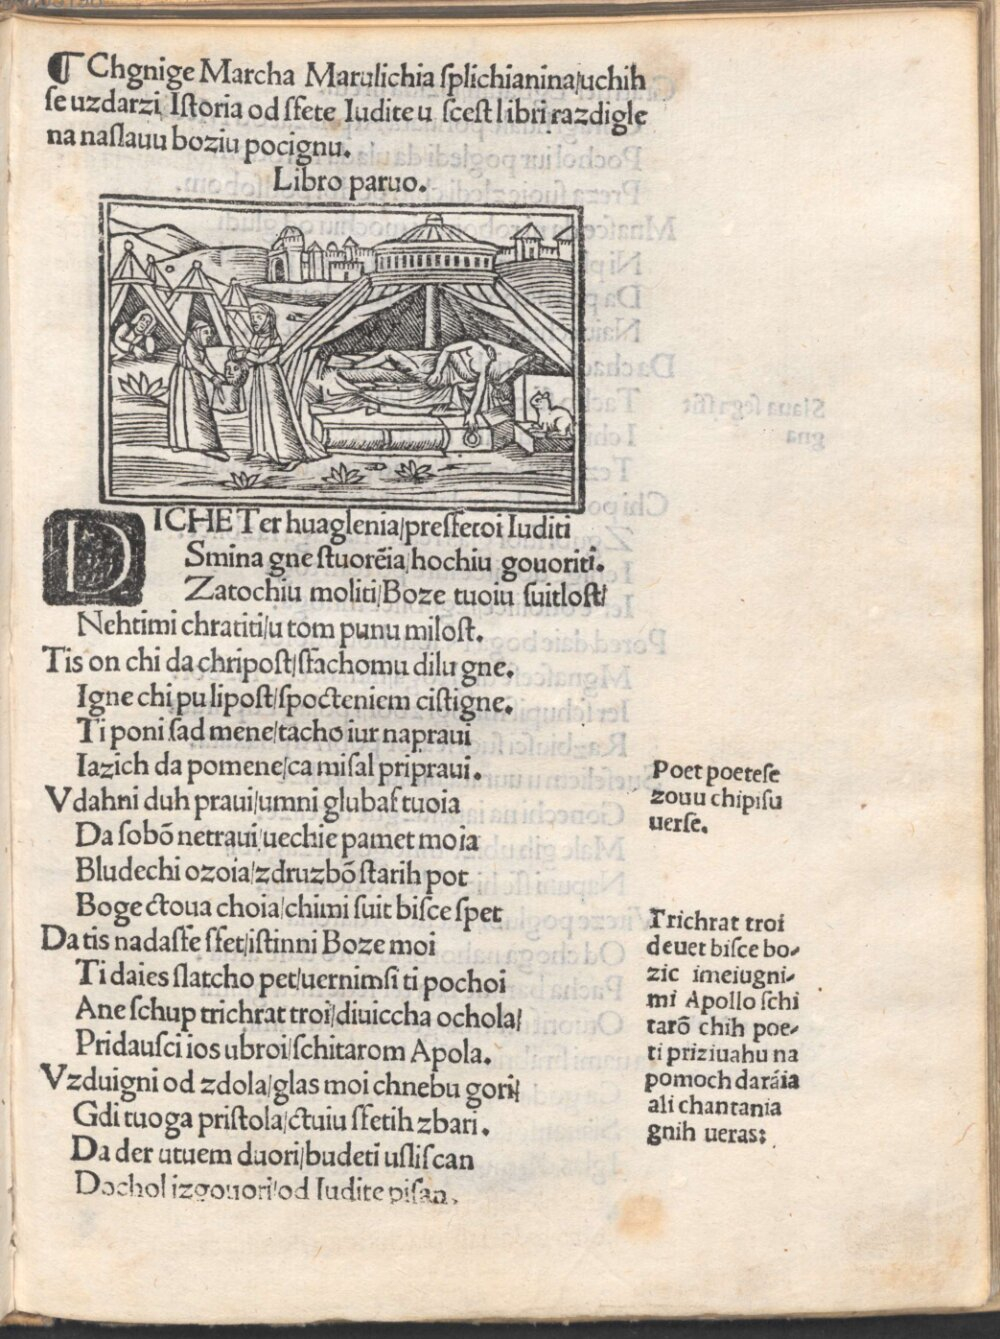 ¶ Chgnige Marcha Marulichia ſplichianina/uchih
ſe uzdarzi Iſtoria od ſfete Iudite u ſceſt libri razdigle
na naſlauu boziu pocignu.
Libro paruo.
DICHE Ter huaglenia/preſfetoi Iuditi
Smina gne ſtuorẽia/hochiu gouoriti.
Zatochiu moliti/Boze tuoiu ſuitloſt/
Nehtimi chratiti/u tom punu miloſt.
Tis on chi da chripoſt/ſfachomu dilu gne.
Igne chi pu lipoſt/ſpocteniem ciſtigne.
Ti poni ſad mene/tacho iur napraui
Iazich da pomene/ca miſal pripraui.
Vdahni duh praui/umni glubaf tuoia
Da ſobõ netraui/uechie pamet moia
Bludechi ozoia/zdruzbõ ſtarih pot
Boge ctoua choia/chimi ſuit biſce ſpet
Da tis nadaſfe ſfet/iſtinni Boze moi
Ti daies ſlatcho pet/uernimſi ti pochoi
Ane ſchup trichrat troi/diuiccha ochola/
Pridauſci ios ubroi/ſchitarom Apola.
Vzduigni od zdola/glas moi chnebu gori/
Gdi tuoga priſtola/ctuiu ſfetih zbari.
Da der utuem duori/budeti uſliſcan
Dochol izgouori/od Iudite piſan.
Poet poeteſe
zouu chipiſu
uerſe.
Trichrat troi
deuet biſce bo-
zic imeiugni-
mi Apollo ſchi
tarõ chih poe-
ti priziuahu na
pomoch daráia
ali chantania
gnih ueras: